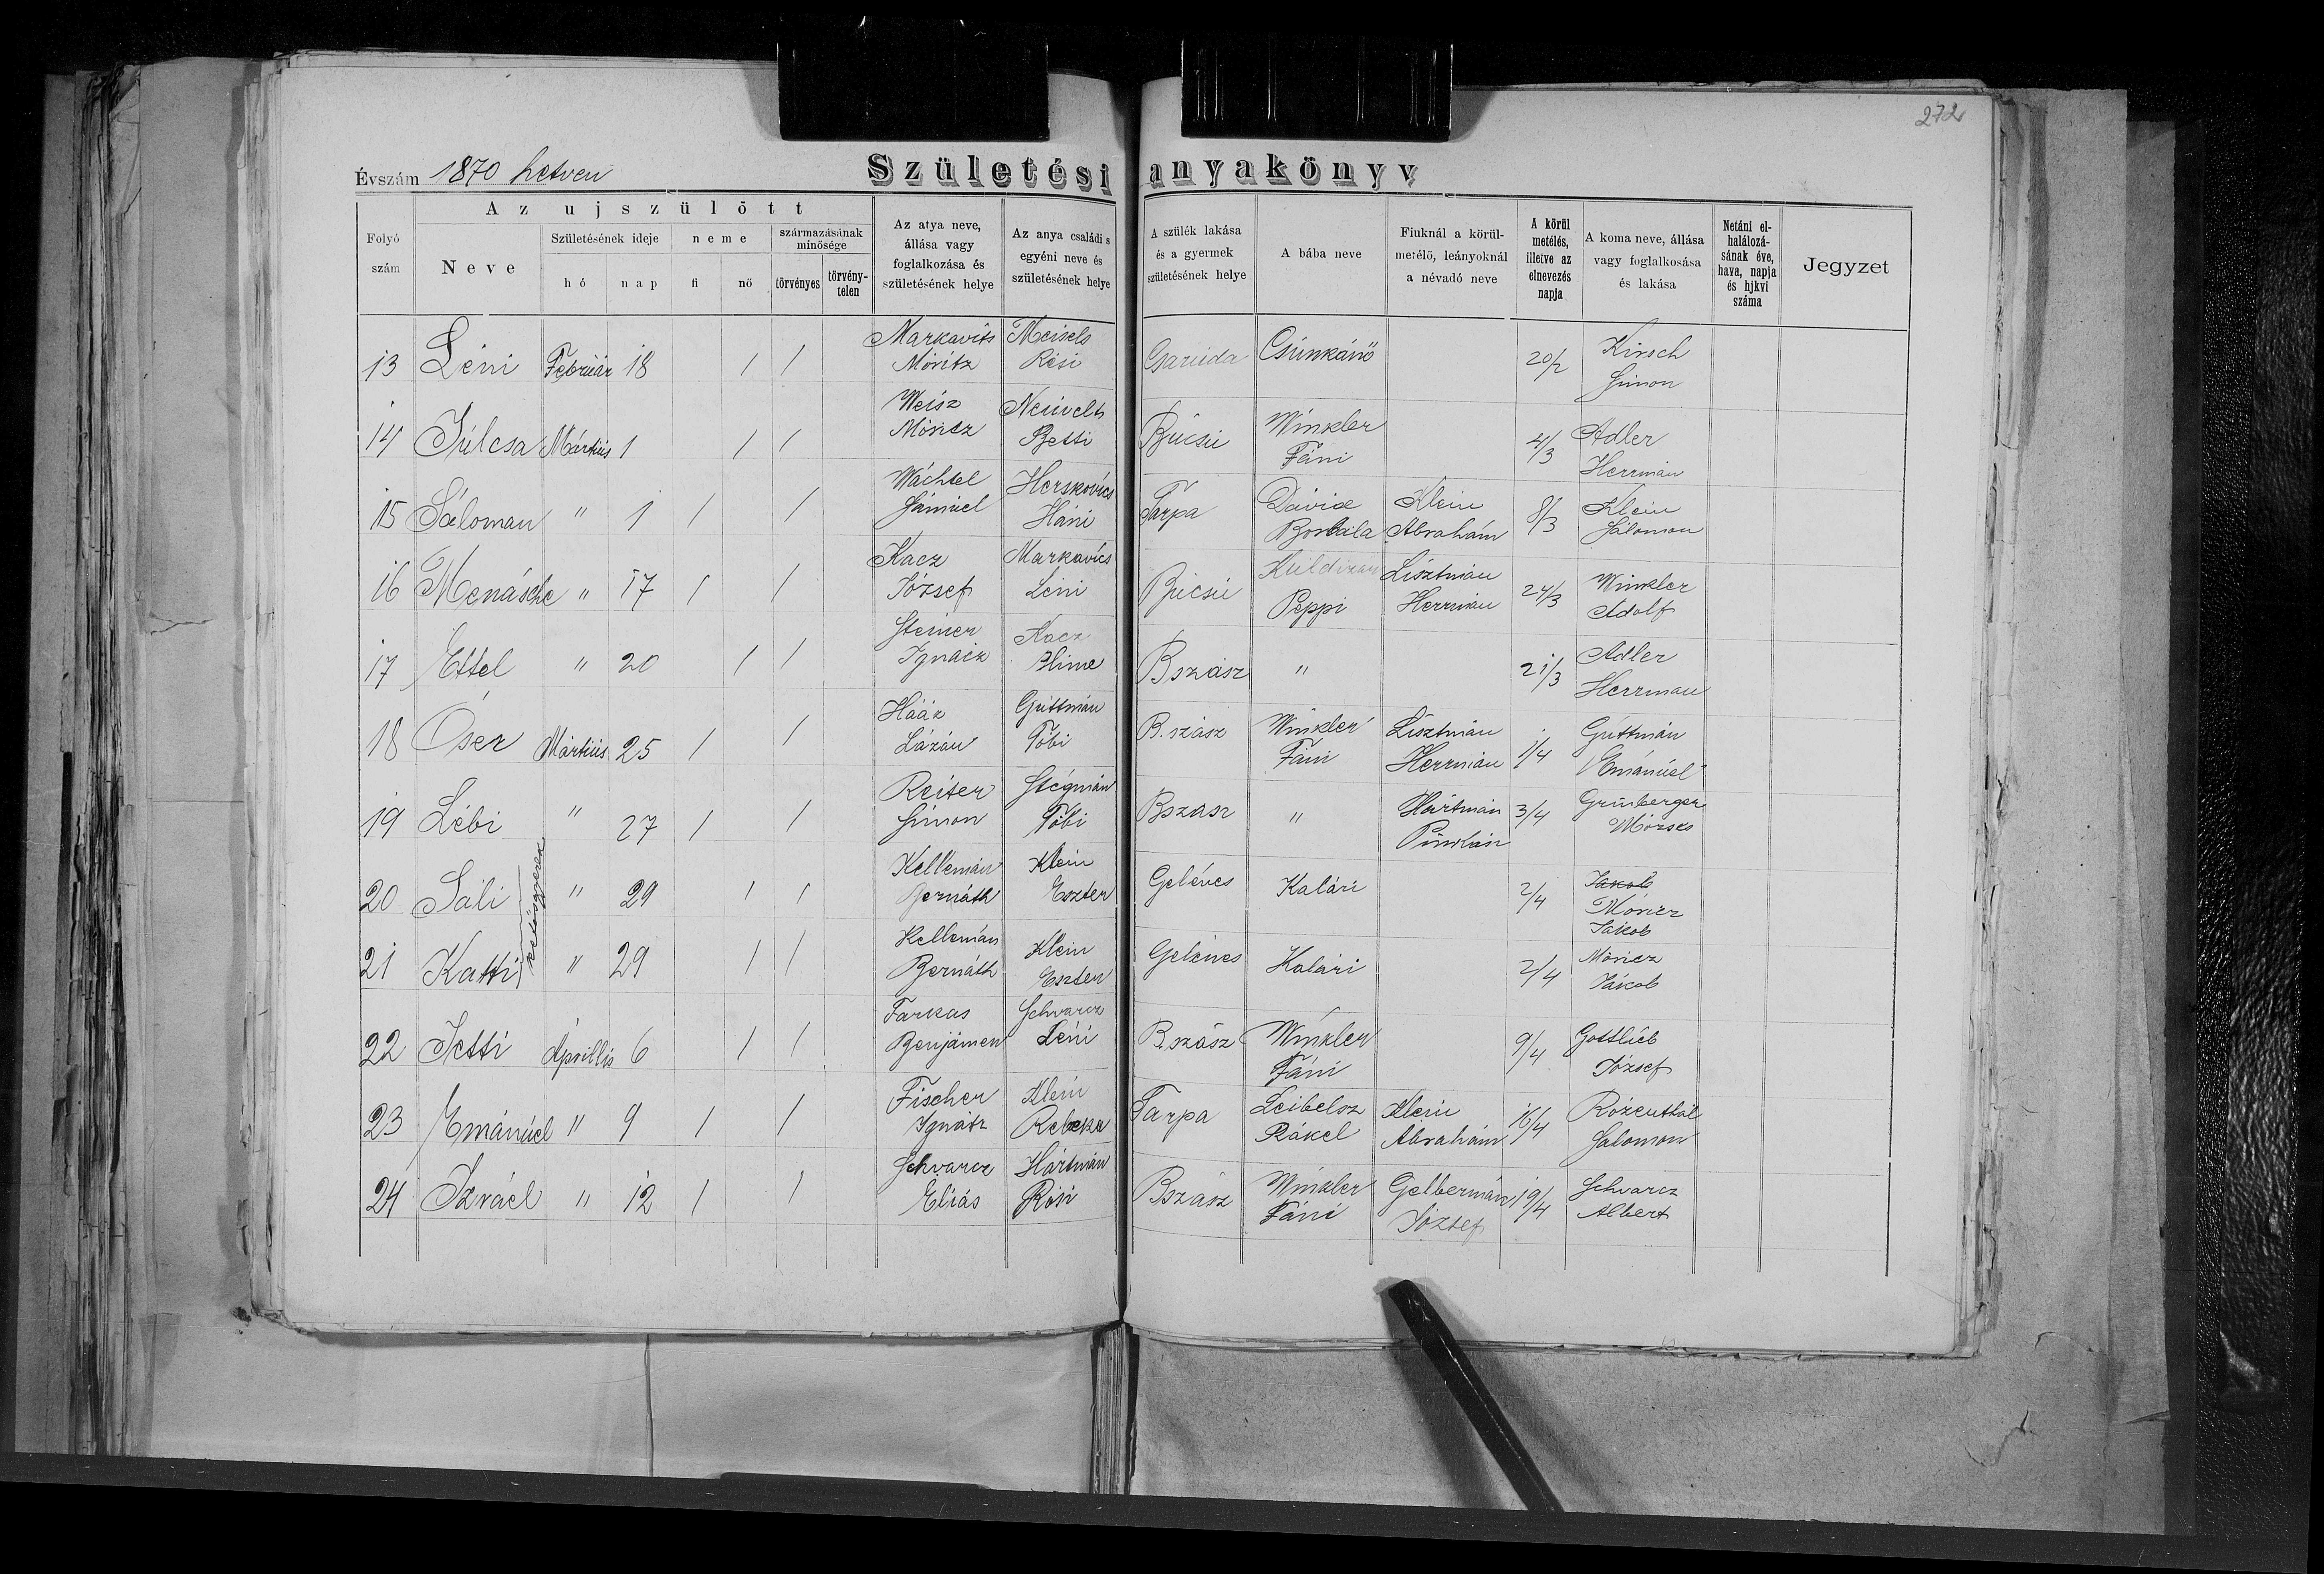 272
Évszám 1870 hetven
Születési anyakönyv
Folyó szám
Az ujszülött
Neve
Születésének ideje
hó
nap
neme
fi
nö
származásának minősége
törvényes
törvénytelen
Az atya neve, állása vagy foglalkozása és születésének helye
Az anya családi s egyéni neve és születésének helye
A szülék lakása és a gyermek születésének helye
A bába neve
Fiuknál a körülmetélö, leányoknál a névadó neve
A körül metélés, illetve az elnevezés napja
A koma neve, állása vagy foglalkosása és lakása
Netáni elhalálozásának éve, hava, napja és hjkvi száma
Jegyzet
13 Léni Február 18 / / Markavits Móritz Meisels Rési Csúnkánő 20/2 Kirsch Simon
14 Júlcsa Mártius 1 / / Weisz Móricz Neuvelt Betti Búcsú Winkler Fáni 4/3 Adler Hermán
15 Sáloman " 1 / / Wáchtel Sámuel Herskovics Háni Tarpa Dávid Borbála Klein Abrahám 8/3 Klein Sálomon
16 Menásche " 17 / / Kacz József Markavics Léni Búcsú Peppi Lisztmán Hermán 24/3 Winkler Adolf
17 Ettel " 20 / / Steiner Ignácz Kacz Blime Bszász " 21/3 Adler Herrman
18 Óser Mártius 25 / / Hááz Lázár Gúttmán Tóbi B.szász Winkler Fáni Lisztmán Hermán 1/4 Gúttmán Emánúel
19 Lébi " 27 / / Reiter Simon Stégmán Tóbi Bszász " Hártmán 3/4 Grünberger Mózses
20 Sáli " 29 / / Kellemán Bernáth Klein Eszter Gelénes Kalári 2/4 Jakob Móricz Jákob
21 Katti " 29 / / Kellemán Bernáth Klein Eszter Gelénes Kalári 2/4 Móricz Jákob
22 Jetti Áprillis 6 / / Farkas Benjámen Schvarcz Léni B.szász Winkler Fáni 9/4 Gottlieb József
23 Emánúel " 9 / / Fischer Ignátz Klein Rebeka Tarpa Leibelsz Rákel Klein Abrahám 16/4 Rozenthál Salomon
24 Izráel " 12 / / Schvarcz Eliás Hártmán Rósi Bszász Winkler Fáni Gelbermán József 19/4 Schvarcz Albert